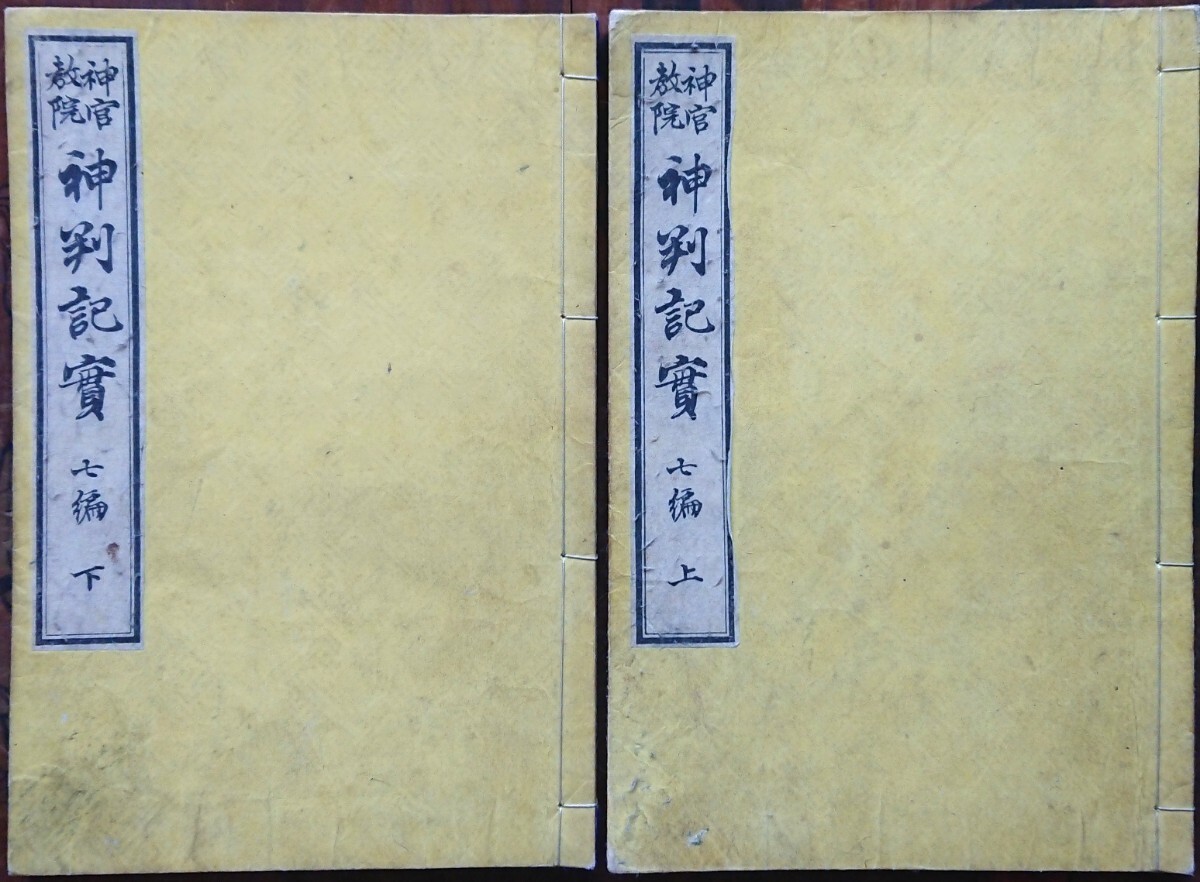 神官
教院
神判記實
七編
上
神官
教院
神判記實
七編
下